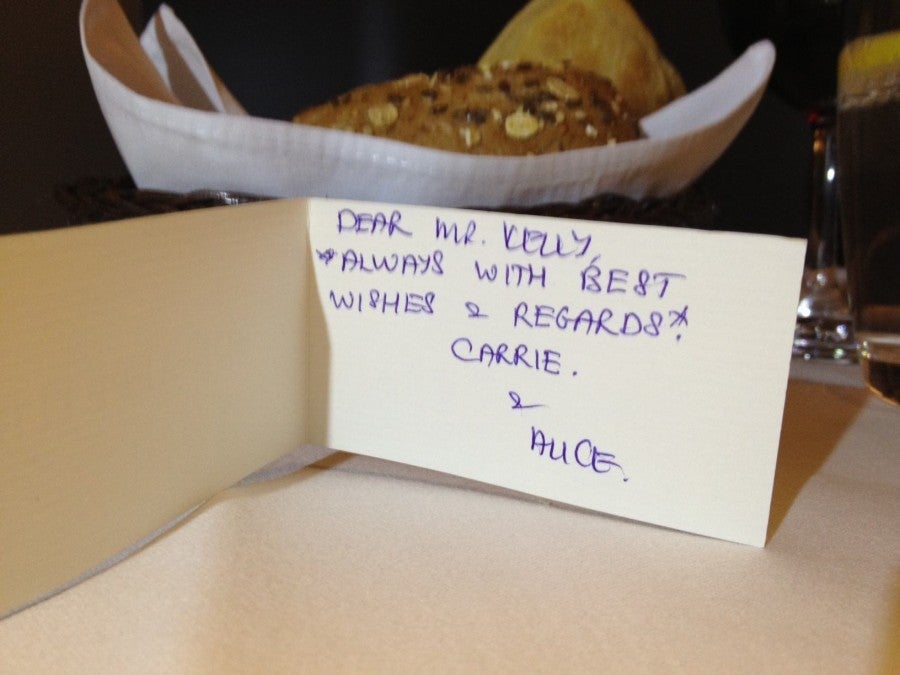 DEAR MR. KELLY,
*ALWAYS WITH BEST
WISHES & REGARDS*.
CARRIE.
&
ALICE.